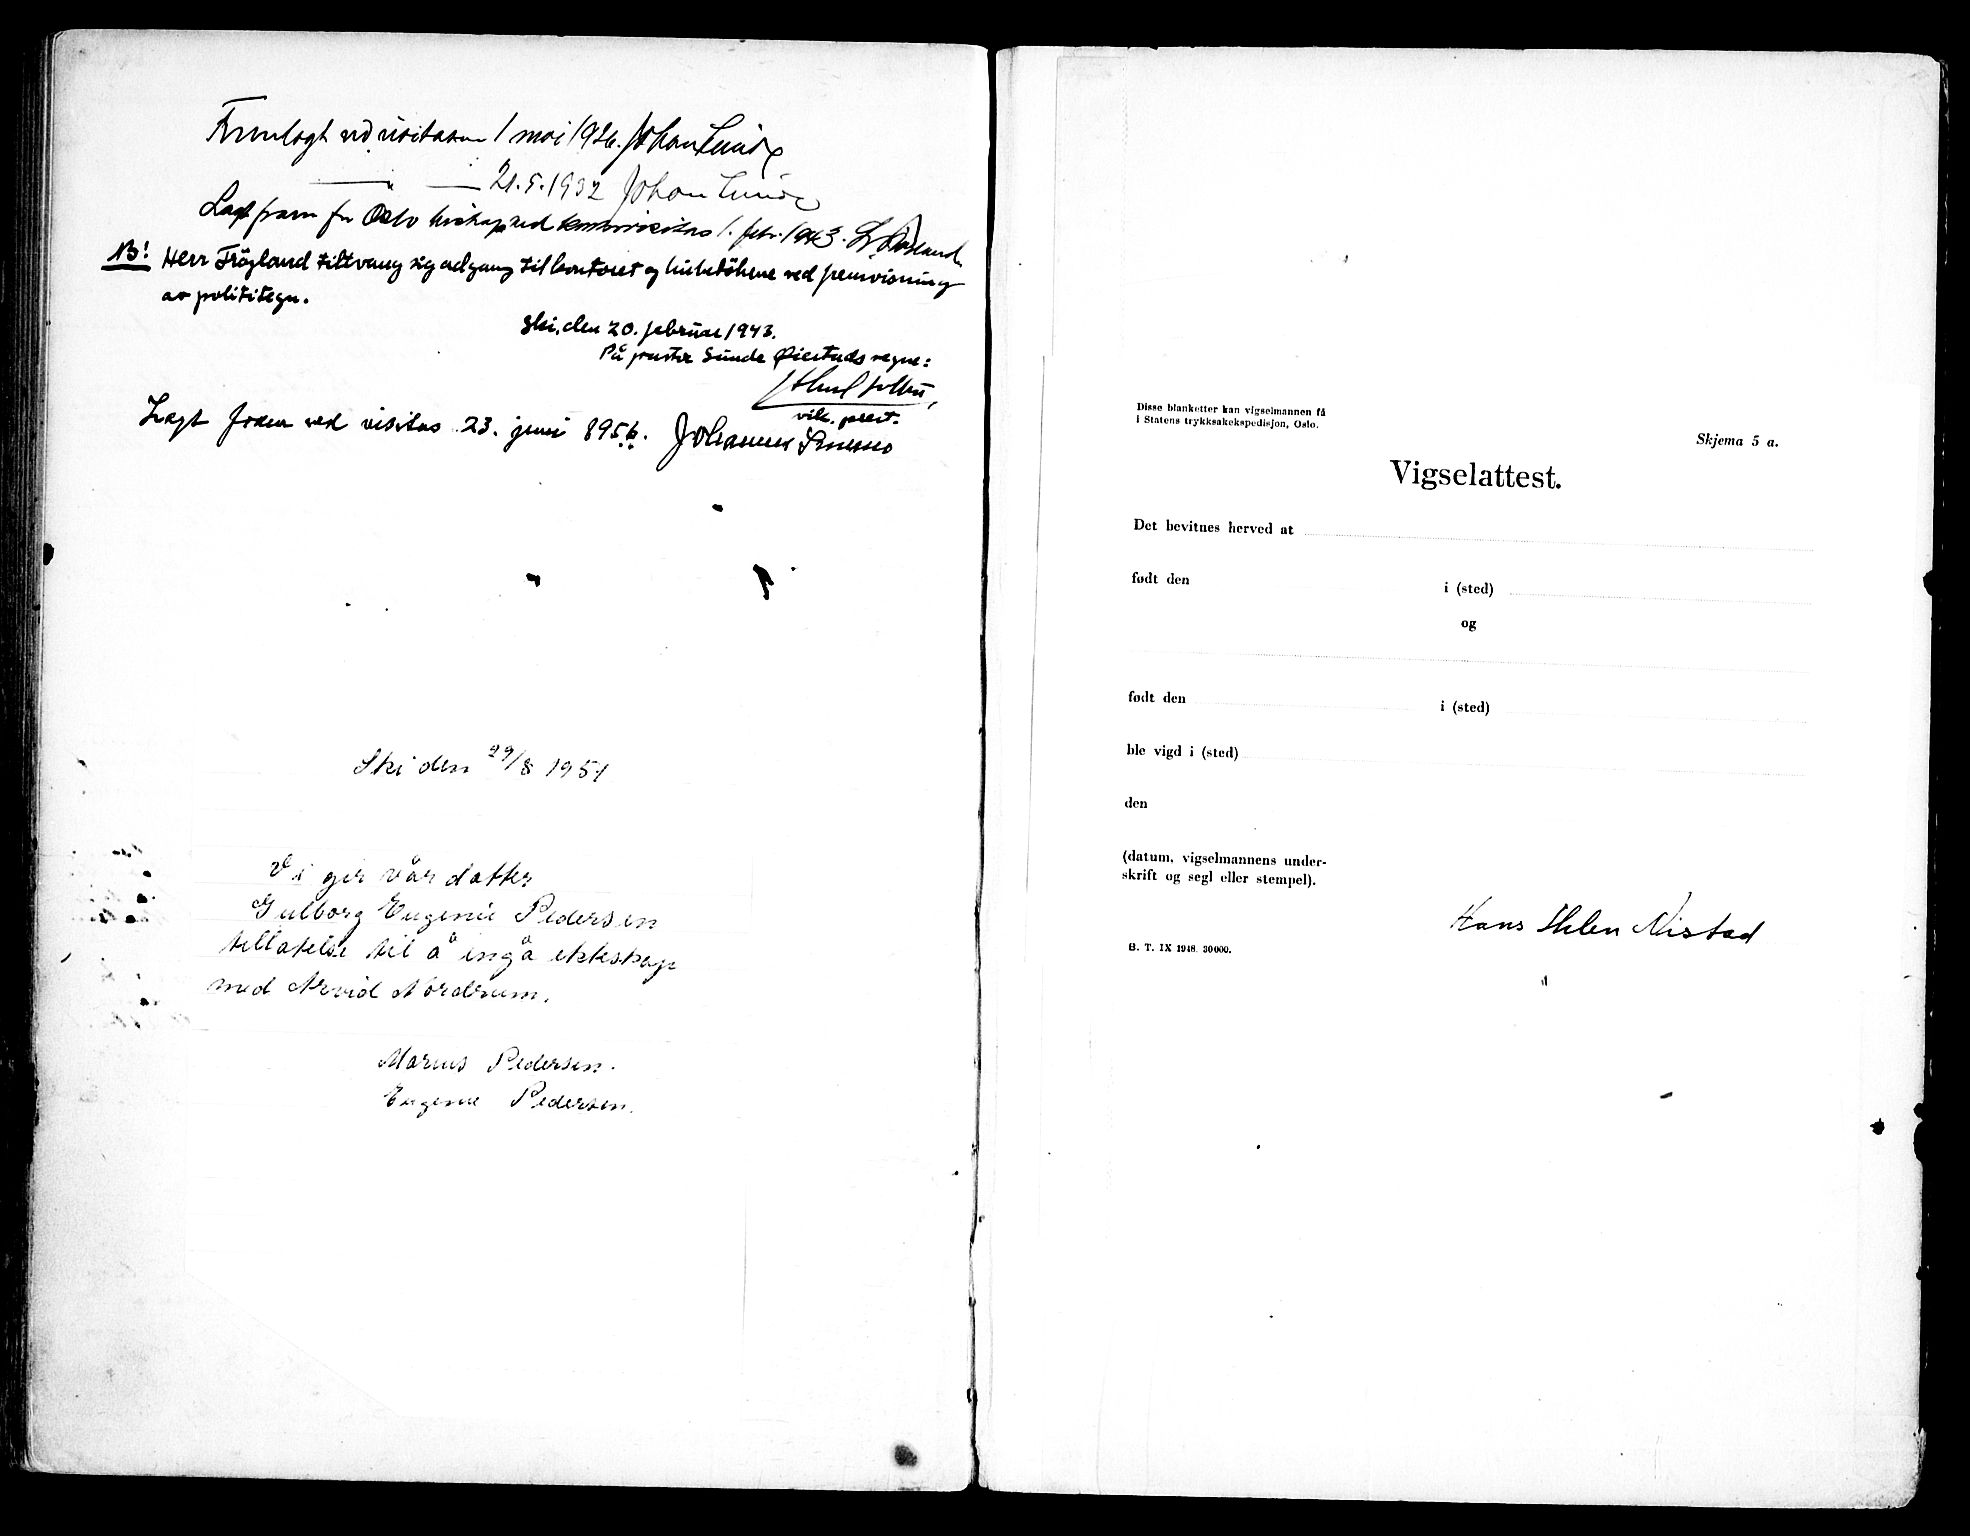 Fremlagt ved visitasen 1 mai 1926. Johan Lunde
— " — 21.5.1932 Johan Lunde
Lagt fram for Oslo biskop ved kontorvisitas 1. febr. 1943.
NB! Herr Frøyland tiltvang sig adgang til kontoret og kirkebökene ved fremvisning
av polititegn.
Ski, den 20. februar 1943.
På pastor Sunde Øiestads vegne:
vik. prest.
Lagt fram ved visitas 23. juni 1956. Johannes Smemo
Ski den 29/8 1951
Vi gir vår datter
Gulborg Eugenie Pedersen
tillatelse til å ingå ekteskap
med Arvid Nordrum.
Marius Pedersen.
Eugenie Pedersen.
Disse blanketter kan vigselmannen få
i Statens trykksakekspedisjon, Oslo.
Skjema 5 a.
Vigselattest.
Det bevitnes herved at
født den i (sted)
og
født den i (sted)
ble vigd i (sted)
den
(datum, vigselmannens under-
skrift og segl eller stempel).
Hans Ihlen Nistad
B. T. IX 1948. 30000.